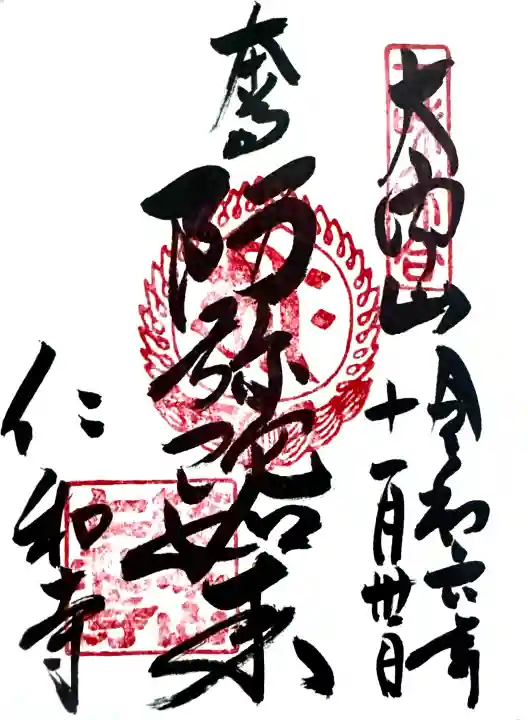 大内山
令和六年
十一月卅日
奉
阿弥陀如来
仁和寺